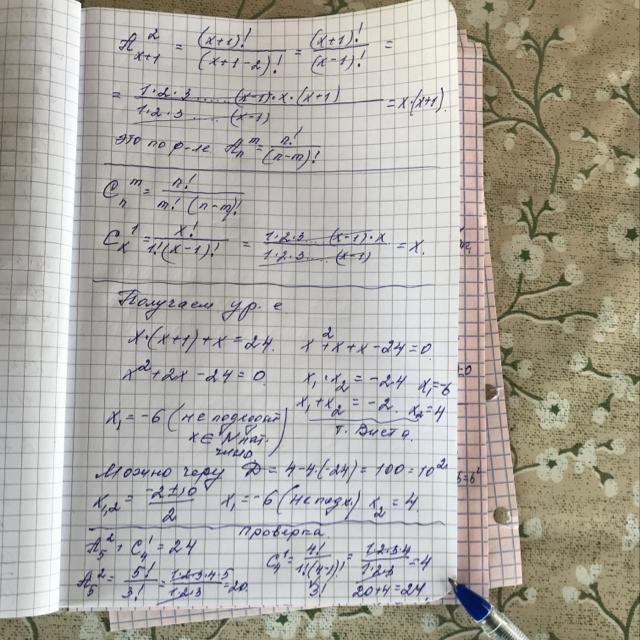 A²ₓ₊₁ = (x+1)! / (x+1-2)! = (x+1)! / (x-1)! =
= 1·2·3 ..... (x-1)·x·(x+1) / 1·2·3 ..... (x-1) = x·(x+1).
Это по ф-ле Aₙᵐ = n! / (n-m)!
Cₙᵐ = n! / m!(n-m)!
Cₓ¹ = x! / 1!(x-1)! = 1·2·3 ... (x-1)·x / 1·2·3 .... (x-1) = x.
Получаем ур-е
x·(x+1)+x = 24. x²+x+x-24=0
x²+2x-24=0 x₁·x₂ = -24 x₁=-6
x₁+x₂ = -2. x₂=4
x₁=-6 (не подходит т. Виета.
x ∈ N нат.
число)
Можно через D = 4-4(-24) = 100 = 10²
x₁,₂ = -2±10 / 2 x₁=-6 (не подх) x₂ = 4
Проверка
A₅² + C₄¹ = 24 C₄¹ = 4! / 1!(4-1)! = 1·2·3·4 / 1·2·3 = 4
3!
A₅² = 5! / 3! = 1·2·3·4·5 / 1·2·3 = 20. 20+4=24.